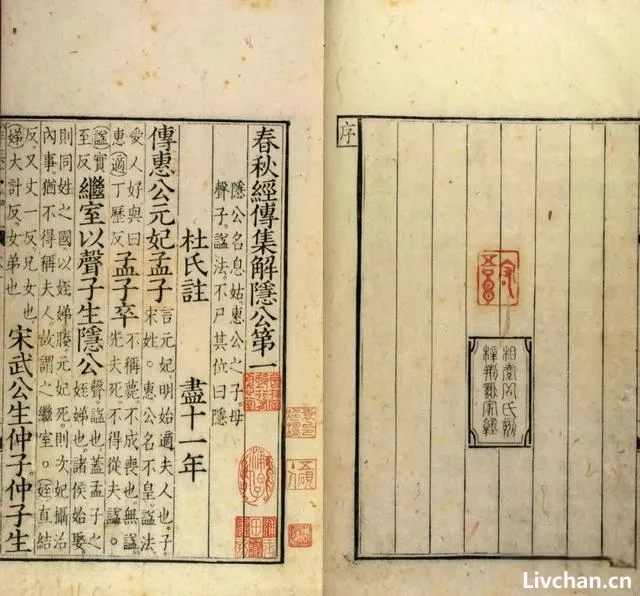 序
相臺岳氏刻
梓荆谿家塾
春秋經傳集解隱公第一
隱公名息姑惠公之子母
聲子。謚法。不尸其位曰隱
杜氏註 盡十一年
傳惠公元妃孟子
言元妃明始適夫人也。子
宋姓。惠公名不皇。謚法。
愛人好與曰
惠(適)丁歷反
孟子卒
不稱薨。不成喪也。無謚。
先夫死不得從夫謚。
(謚)實
至反
繼室以聲子生隱公
聲謚也蓋孟子之
姪娣也。諸侯始娶
則同姓之國以姪娣媵元妃死。則次妃攝治
內事。猶不得稱夫人。故謂之繼室。(姪)直結
反。又丈一反。兄女也
(娣)大計反。女弟也
宋武公生仲子。仲子生
Livchan.cn